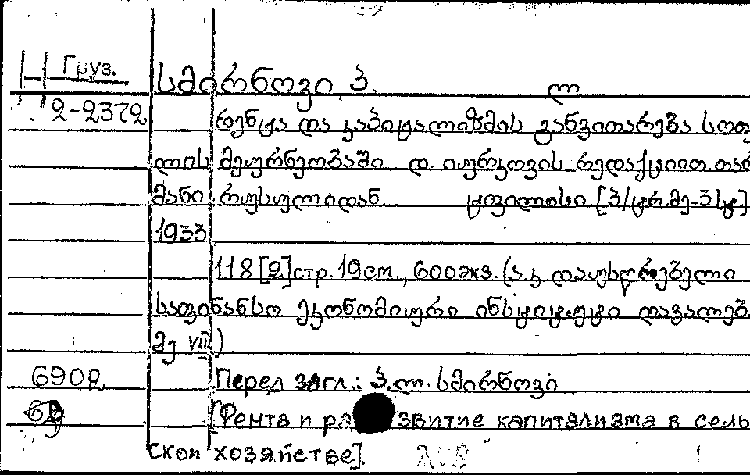 Груз.
სმირნოვი, პ.
2-2372
რენტა და კაპიტალიზმის განვითარება სოფ
ლის მეურნეობაში დ. იურკოვის რედაქციით. თარ
მანი რუსულიდან ტფილისი [პ/ტრ. მე-3 სტ]
1933
118 [2] стр. 19 см., 600 экз. (ა.კ. დაუსწრებელი
საფინანსო ეკონომიური ინსტიტუტი დავალებ
მე VIII)
6902 Перед загл.: პ. ლ. სმირნოვი
[Рента и развитие капитализма в сель
ском хозяйстве].